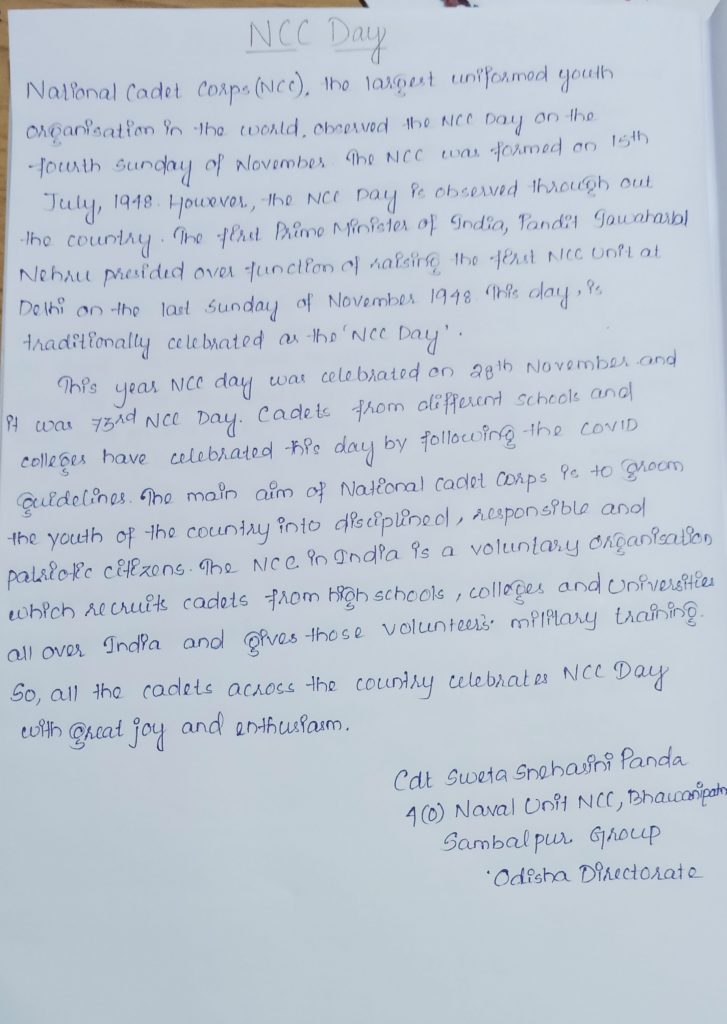 NCC Day
National Cadet Corps (NCC), the largest uniformed youth
organisation in the world, observed the NCC Day on the
fourth sunday of November. The NCC was formed on 15th
July, 1948. However, the NCC Day is observed through out
the country. The first Prime Minister of India, Pandit Jawaharlal
Nehru presided over function of raising the first NCC Unit at
Delhi on the last Sunday of November 1948. This day, is
traditionally celebrated as the 'NCC Day'.
This year NCC day was celebrated on 28th November and
it was 73rd NCC Day. Cadets from different schools and
colleges have celebrated this day by following the COVID
guidelines. The main aim of National Cadet Corps is to groom
the youth of the country into disciplined, responsible and
patriotic citizens. The NCC in India is a voluntary organisation
which recruits cadets from high schools, colleges and Universities
all over India and gives those volunteers military training.
So, all the cadets across the country celebrates NCC Day
with great joy and enthusiasm.
Cdt Sweta Snehasini Panda
4(O) Naval Unit NCC, Bhawanipatn
Sambalpur Group
Odisha Directorate